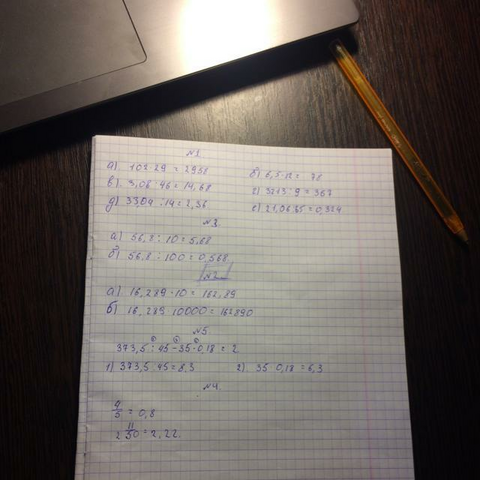 №1
а) 102·29 = 2958 б) 6,5·12 = 78
в) 3,06:46 = 14,68 г) 3213:9 = 357
д) 33,04:14 = 2,36 е) 21,06:65 = 0,324
№2
а) 56,8:10 = 5,68
б) 56,8:100 = 0,568
№3
а) 16,289·10 = 162,89
б) 16,289·10000 = 162890
№5
373,5:45-35·0,18 = 2
1) 373,5:45 = 8,3 2) 35·0,18 = 6,3
№4
4/5 = 0,8
2 11/50 = 2,22